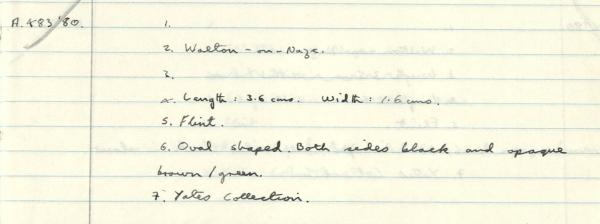 A.483'80. 1.
2. Walton-on-Naze.
3.
4. Length: 3.6 cms. Width: 1.6 cms.
5. Flint.
6. Oval shaped. Both sides black and opaque
brown/green.
7. Yates Collection.